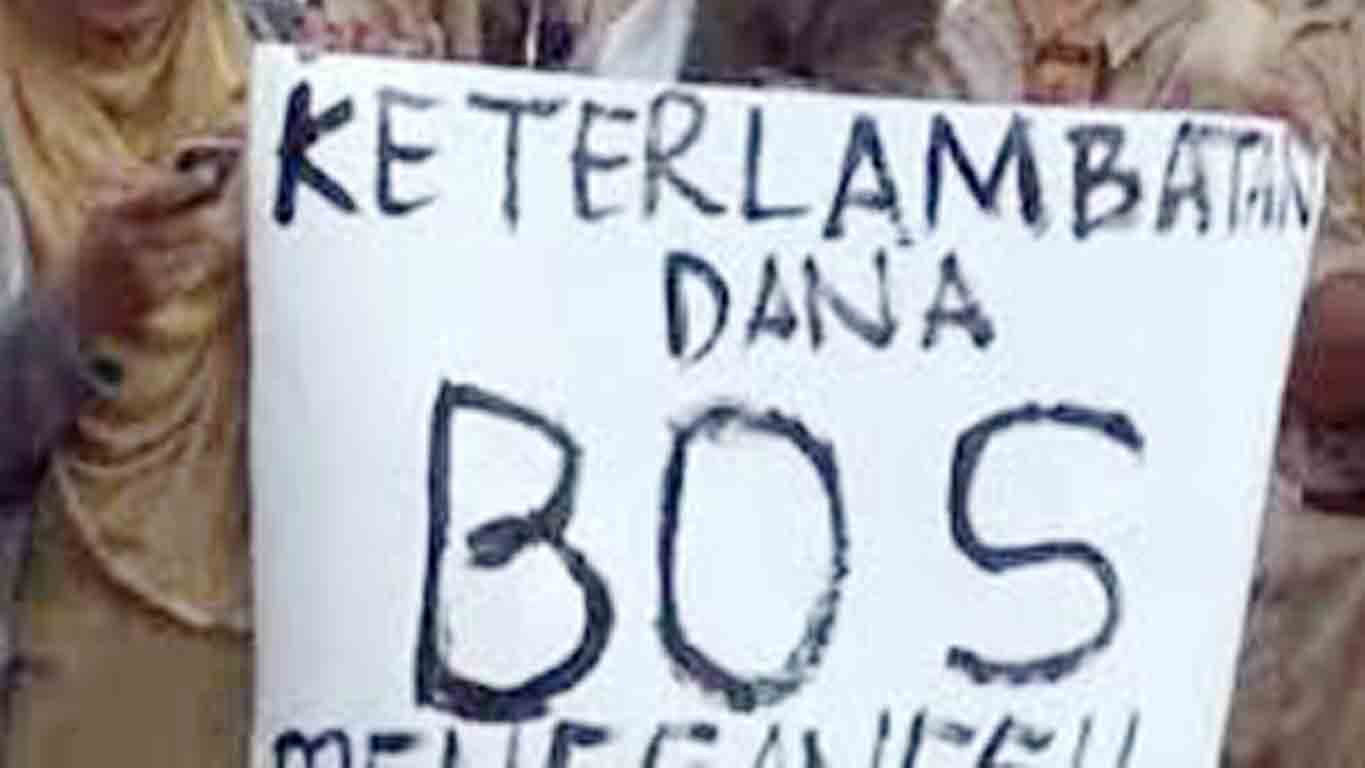 KETERLAMBATAN
DANA
BOS